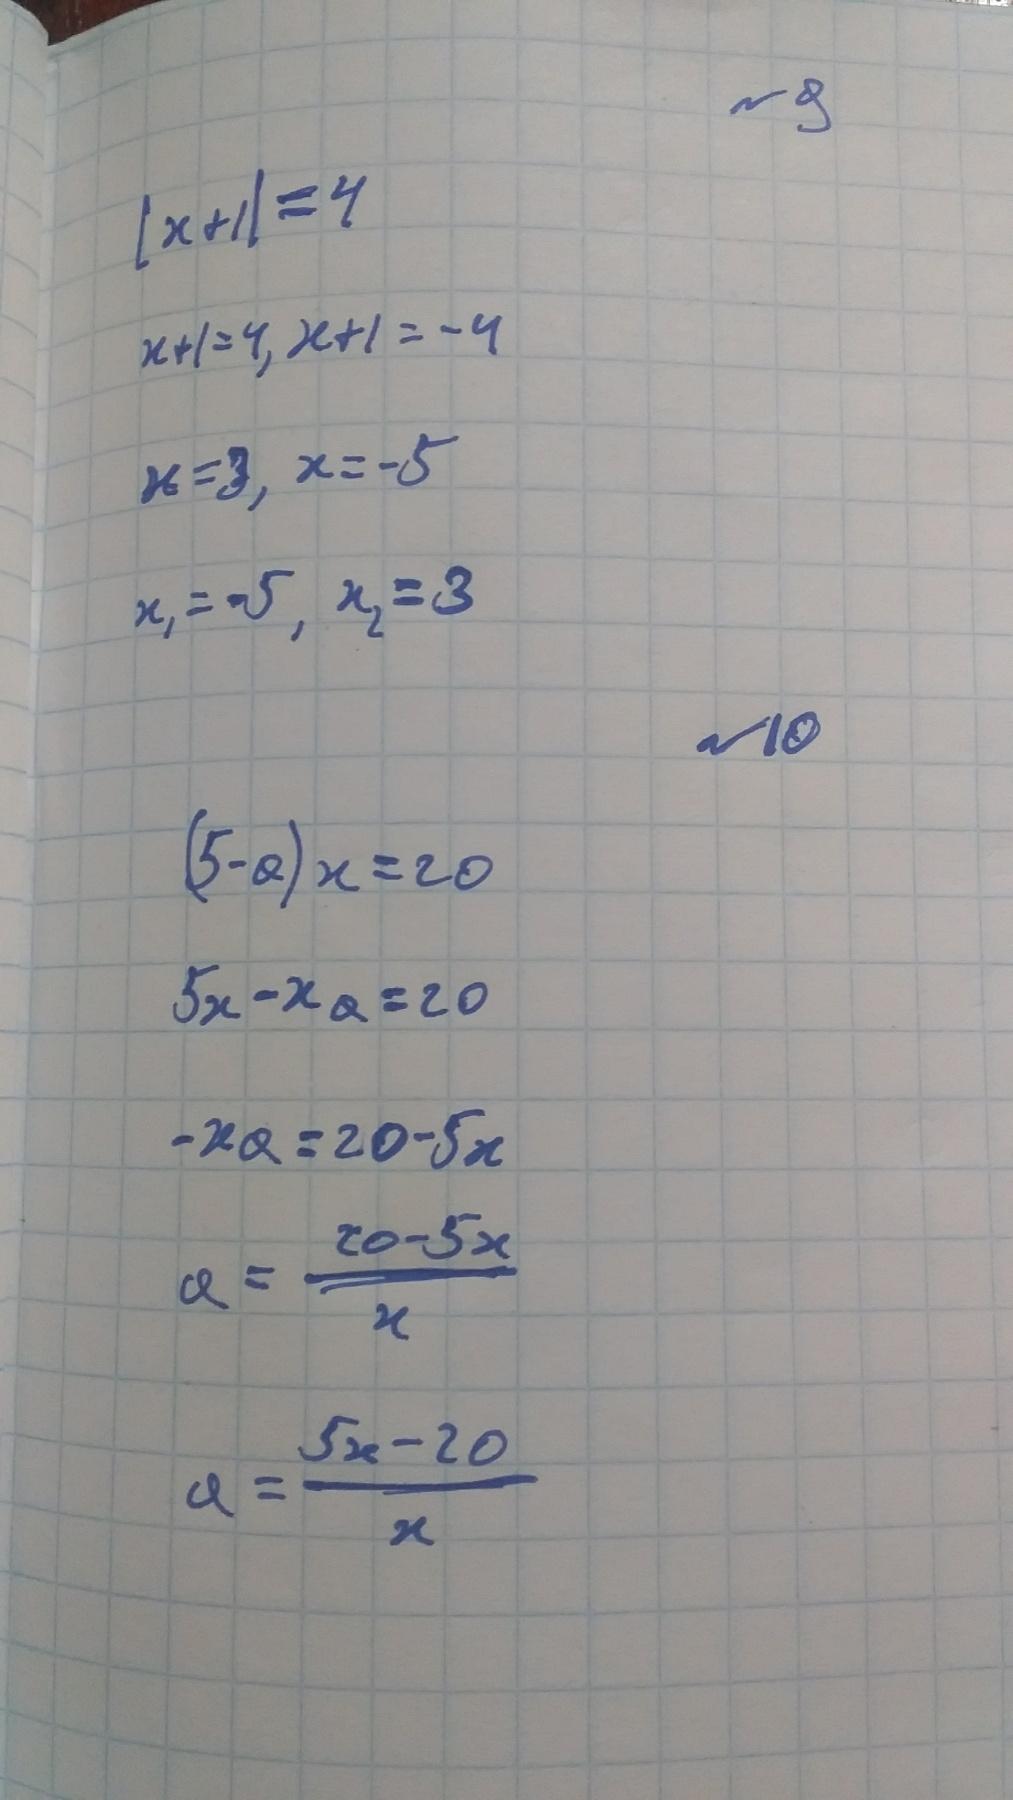 №9
|x+1|=4
x+1=4, x+1=-4
x=3, x=-5
x₁=-5, x₂=3
№10
(5-a)x=20
5x-xa=20
-xa=20-5x
a = (20-5x)/x
a = (5x-20)/x